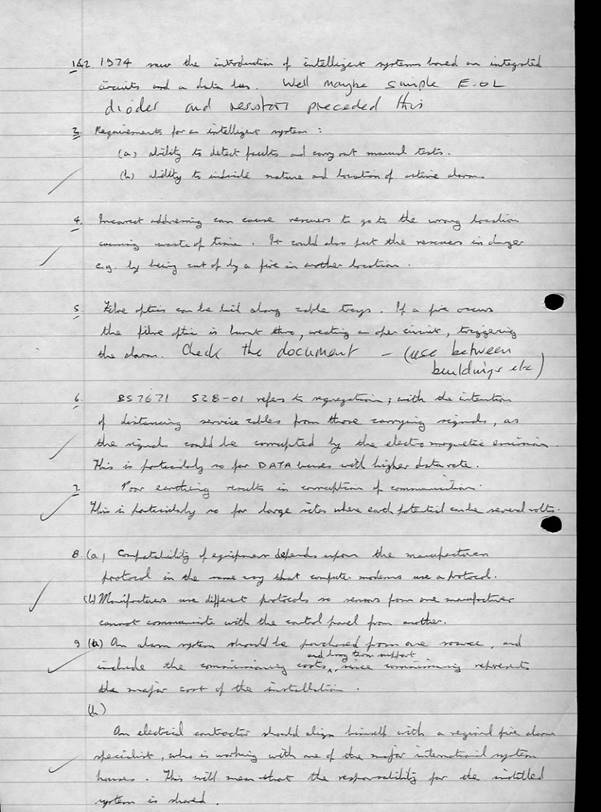 1&2 1974 saw the introduction of intelligent systems based on integrated
circuits and a data bus. Well maybe simple E.OL
diodes and resistors preceded this
3. Requirements for an intelligent system :
(a) ability to detect faults and carry out manual tests.
(b) ability to indicate nature and location of active alarm.
4. Incorrect addressing can cause rescuers to go to the wrong location
causing waste of time. It could also put the rescuers in danger
e.g. by being cut off by a fire in another location.
5 Fibre optics can be laid along cable trays. If a fire occurs
the fibre optic is burnt thro, creating an open circuit, triggering
the alarm. Check the document - (use between
buildings etc)
6. BS7671 528-01 refers to segregation; with the intention
of distancing service cables from those carrying signals, as
the signals could be corrupted by the electromagnetic emission.
This is particularly so for DATA buses with higher data rate.
7 Poor earthing results in corruption of communication.
This is particularly so for large sites where earth potential can be several volts.
8. (a) Compatability of equipment depends upon the manufacturers
protocol in the same way that computer modems use a protocol.
(b) Manufacturers use different protocols so sensors from one manufacturer
cannot communicate with the control panel from another.
9 (a) An alarm system should be purchased from one source, and
and long term support
include the commissioning costs, since commissioning represents
the major cost of the installation.
(b)
An electrical contractor should align himself with a regional fire alarm
specialist, who is working with one of the major international system
houses. This will mean that the responsibility for the installed
system is shared.